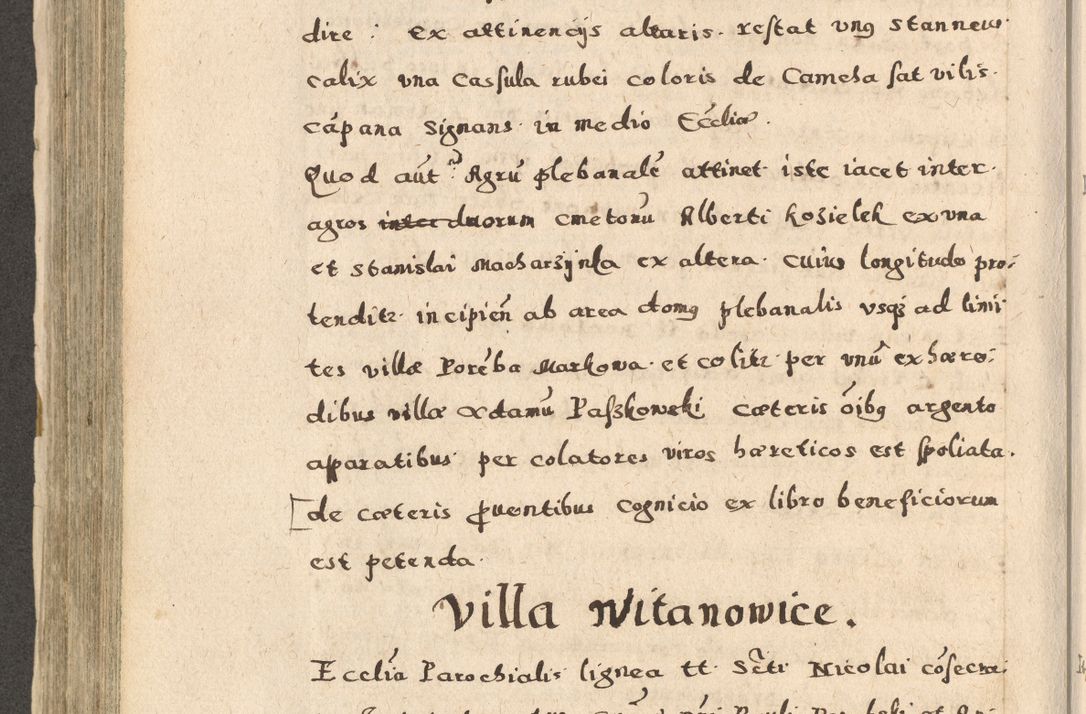 dire. Ex attinencijs altaris. restat vnꝰ stanneus
calix vna Cassula rubei coloris de Camcha sat vilis.
cãpana signans in medio Eccliæ.
Quod aũt Agrũ plebanalẽ attinet iste iacet inter
agros inter duorum cmetonũ Alberti Kosielek ex vna
et Stanislai Macharzÿnka ex altera. cuius longitudo pro-
tenditr incipien̄ ab area domꝰ plebanalis vsqꝫ ad limi
tes villæ Porẽba Markowa. et colitr per vnũ ex hære-
dibus villæ Adamũ Paszkowski cæteris oĩbꝰ argento
apparatibus per colatores viros hæreticos est spoliata.
de cæteris ꝓuentibus cognicio ex libro beneficiorum
est petenda.
Villa Witanowice.
Ecclia Parochialis lignea tt Scti Nicolai cõsecra-